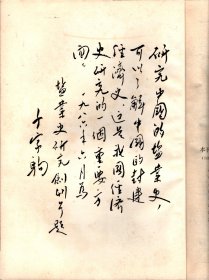 研究中国的盐业史，
可以了解中国的封建
经济史，这是我国经济
史研究的一个重要方
面。一九八六年六月为
盐业史研究创刊号题
千家驹